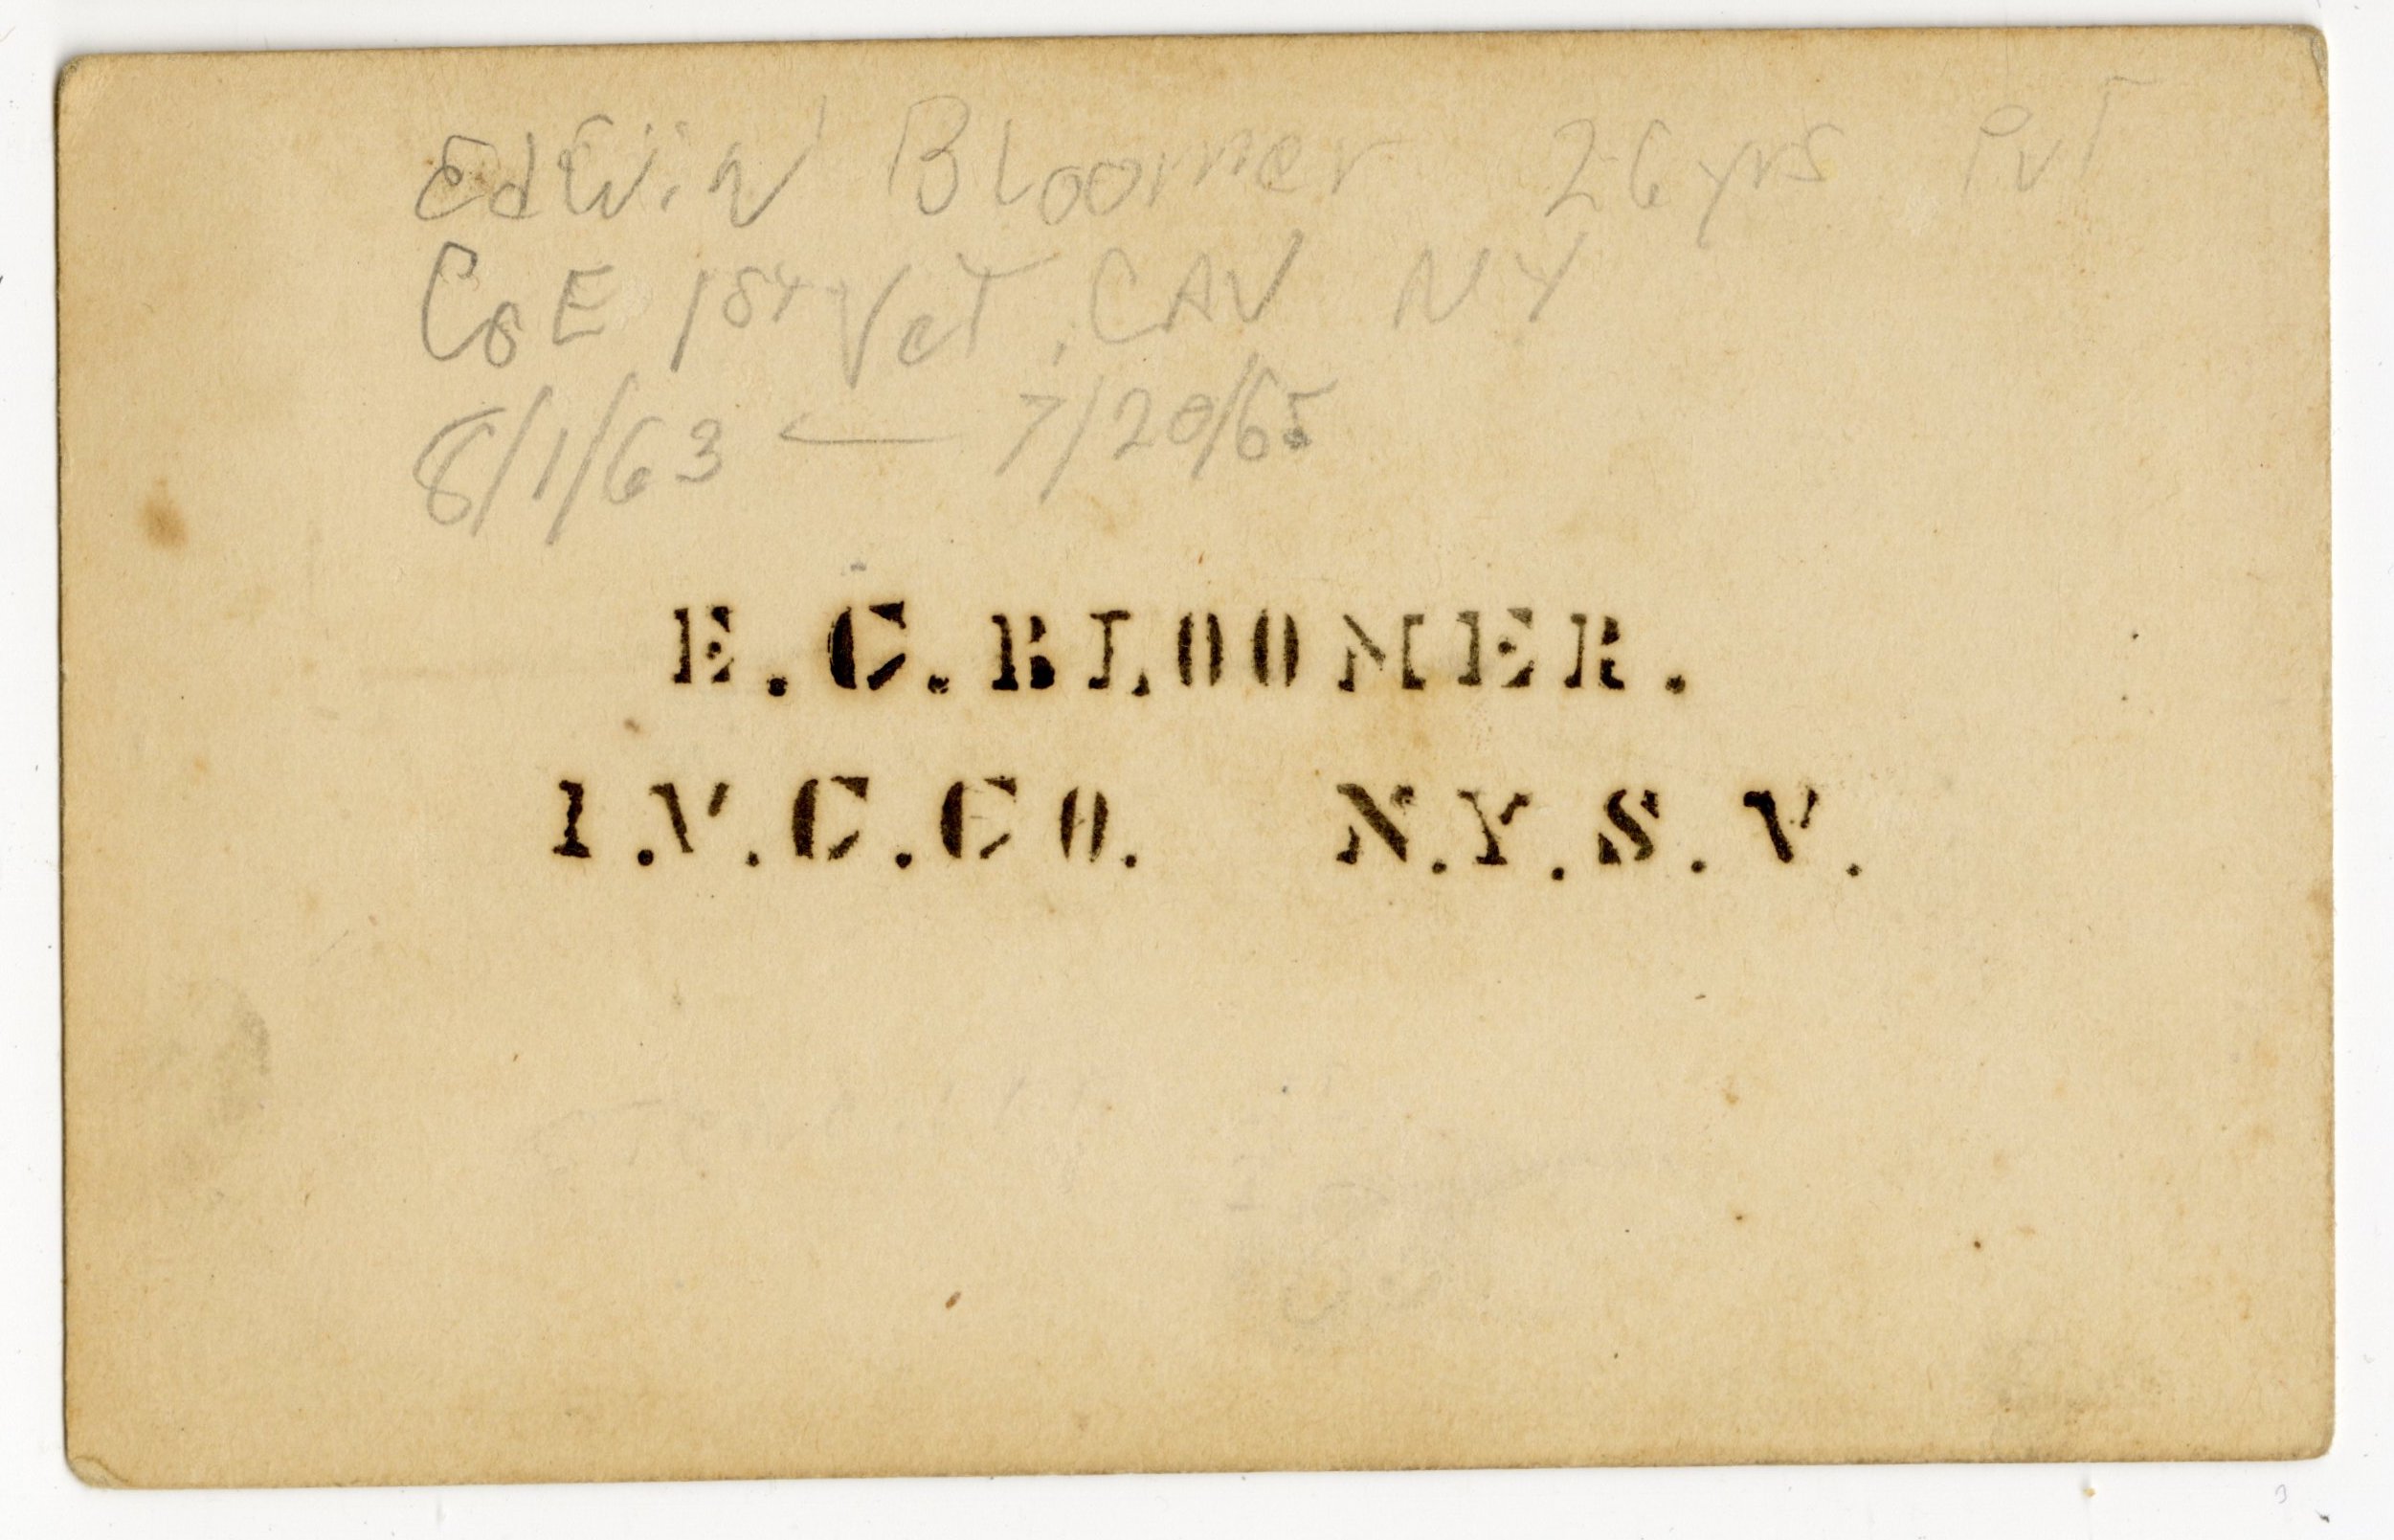 Edwin Bloomer 26 yrs Pvt
Co E 1st Vet. CAV NY
8/1/63 ← 7/20/65
E.C.BLOOMER.
1.V.C.CO. N.Y.S.V.